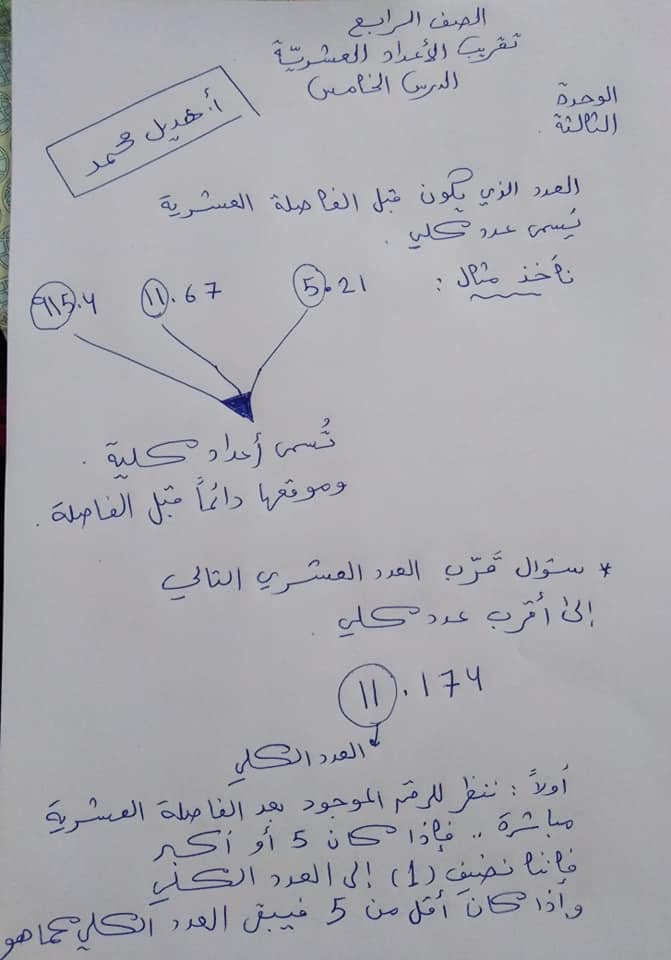 الصف الرابع
تقريب الأعداد العشريّة
الدرس الخامس
الوحدة
الثالثة
أ. هديل محمد
العدد الذي يكون قبل الفاصلة العشرية
يُسمى عدد كلي .
نأخذ مثال :
5.21 11.67 915.4
تُسمى أعداد كلية .
وموقعها دائماً قبل الفاصلة .
* سؤال قرّب العدد العشري التالي
إلى أقرب عدد كلي .
11.174
العدد الكلي
أولاً : ننظر للرقم الموجود بعد الفاصلة العشرية
مباشرة .. فإذا كان 5 أو أكبر
فإننا نضيف (1) إلى العدد الكلي
وأذا كان أقل من 5 فيبقى العدد الكلي كما هو